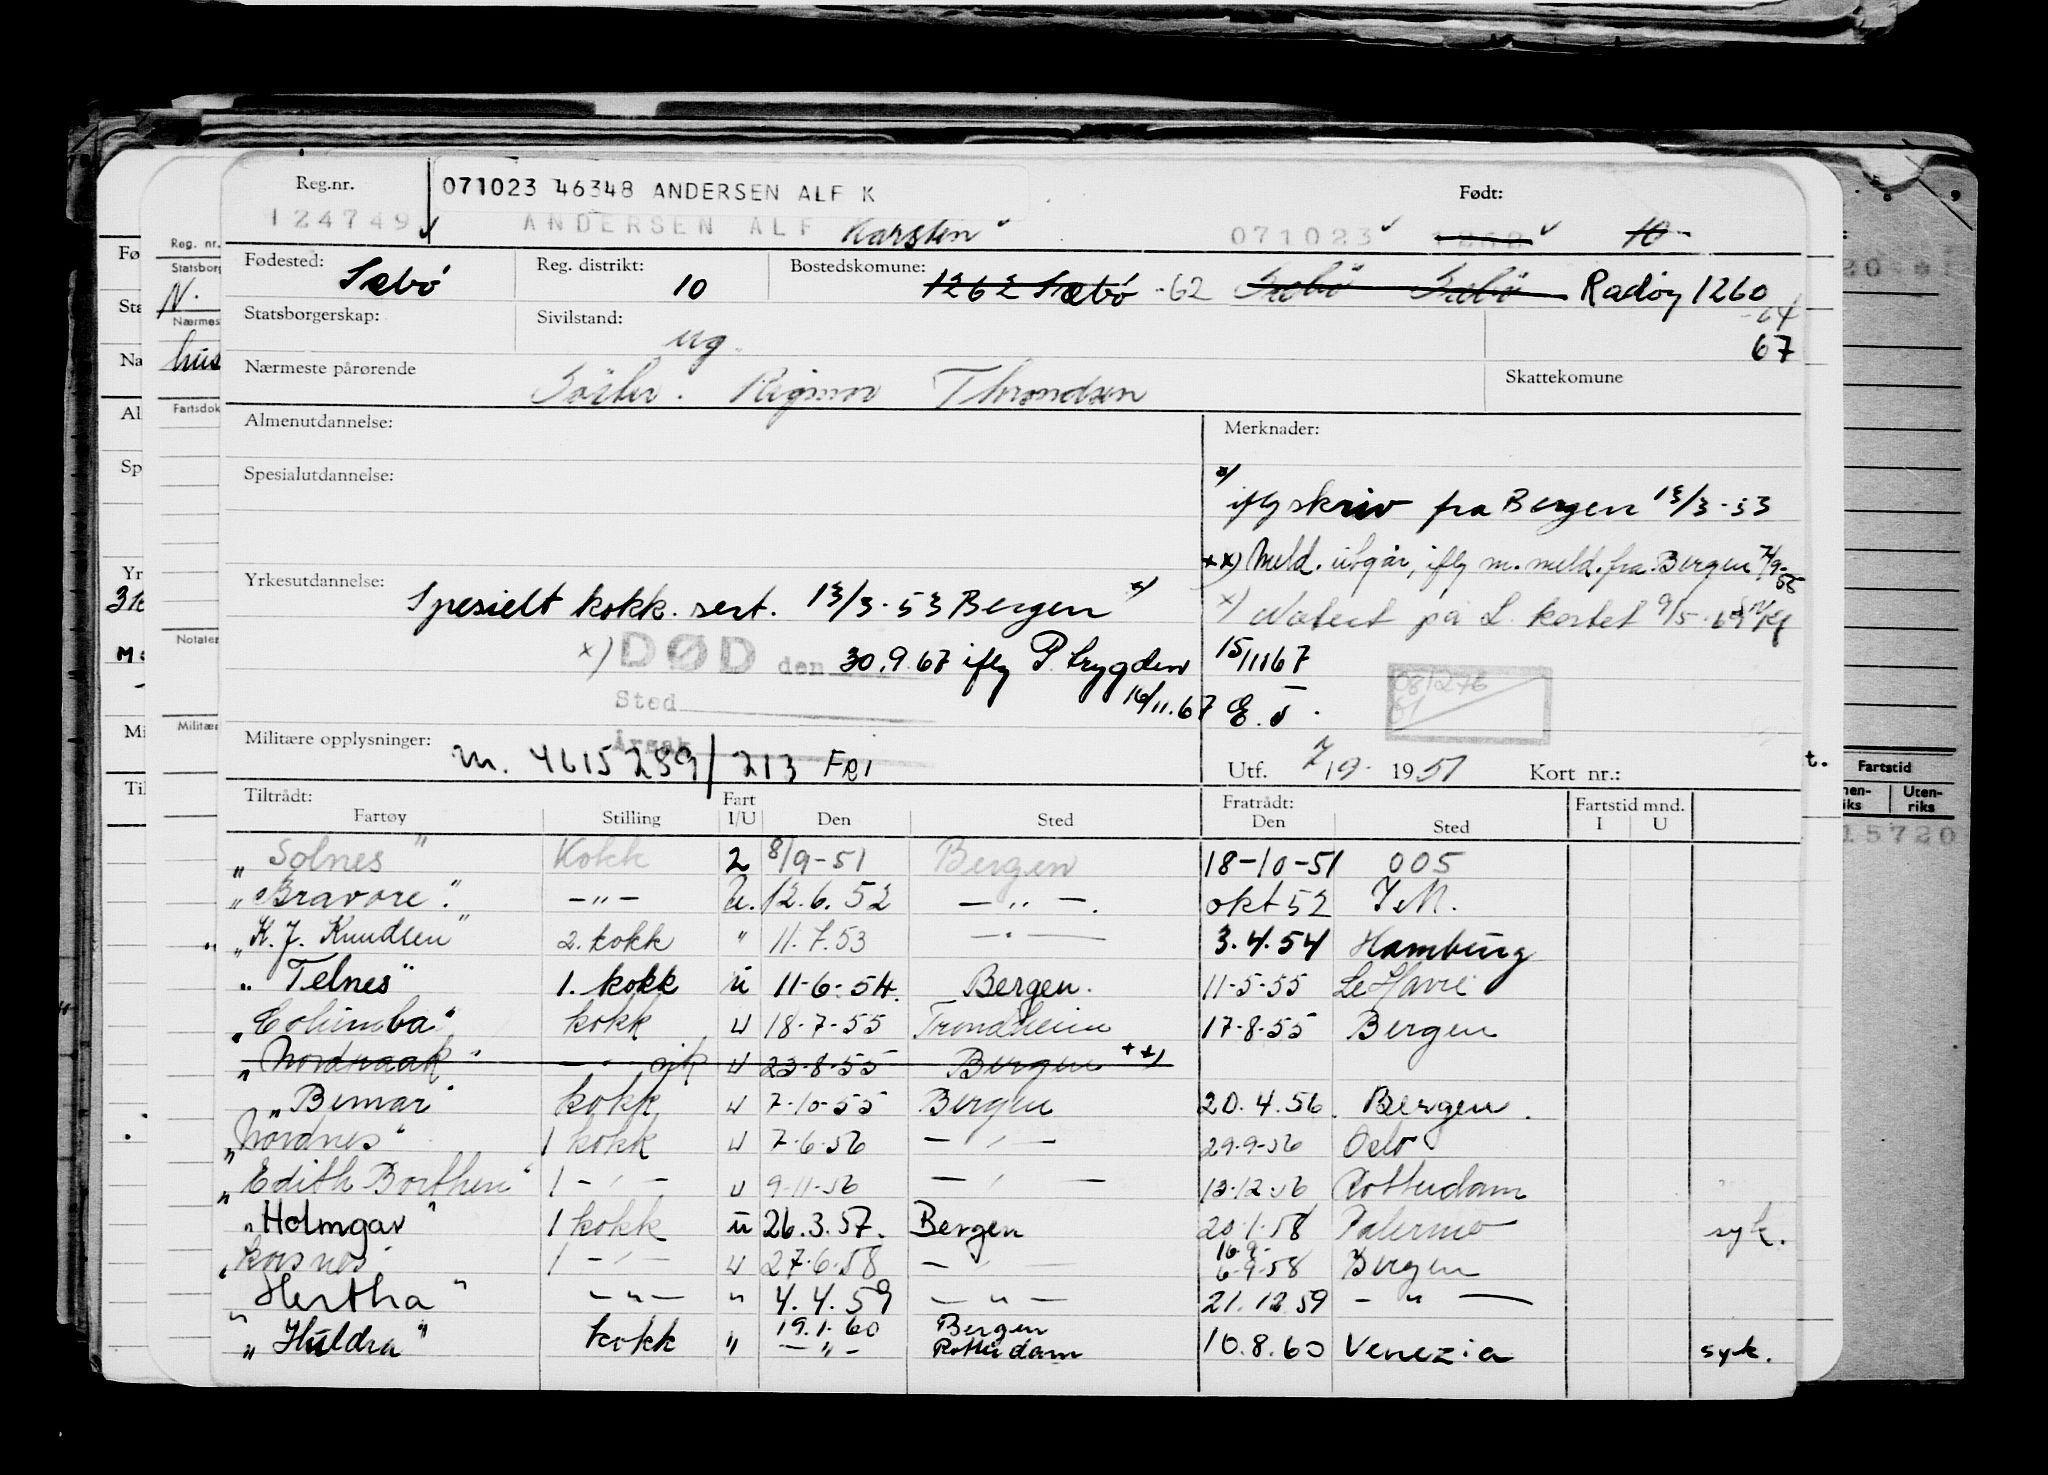 Reg.nr. 071023 46348 ANDERSEN ALF K Født:
124749 ANDERSEN ALF Karsten 071023 1262 10
Fødested: Sæbö Reg. distrikt: 10 Bostedskomune: 1262 Sæbö -62 Sæbö Sæbö Radöy 1260
-64
Statsborgerskap: Sivilstand: ug. 67
Nærmeste pårørende Söster. Rigmor Throndsen Skattekomune
Almenutdannelse: Merknader:
Spesialutdannelse:
x) iflg skriv fra Bergen 13/3-53
xx) Meld. utgår, iflg m. meld. fra Bergen 7/9-55
Yrkesutdannelse: Spesielt kokk. sert. 13/3-53 Bergen x)
x) Notert på L. kortet 9/5-69
x) DØD den 30.9.67 iflg P. trygden 15/11 67
Sted 16/11.67 E.J.
081276
Årsak
Militære opplysninger: m. 4615289/213 FRI Utf. 7/9 1951 Kort nr.:
Tiltrådt: Fart Fratrådt: Fartstid mnd.
Fartøy Stilling I/U Den Sted Den Sted I U
"Solnes" Kokk 2 8/9-51 Bergen 18-10-51 005
"Bravore". -"- U. 12.6.52 -"-. okt 52 I.M.
"K.J. Knudsen" 2. kokk " 11.7.53 -"- 3.4.54 Hamburg
"Telnes" 1. kokk u 11-6-54. Bergen. 11-5-55 Le Havre
"Columba" kokk u 18-7-55 Trondheim 17-8-55 Bergen
"Nordraak" -"- u 23-8-55 Bergen xx)
"Bimar" kokk u 7-10-55 Bergen 20.4.56. Bergen.
"Nordnes" 1 kokk u 7-6-56 -"- 29-9-56 Oslo
"Edith Borthen" 1 -"- u 9-11-56 -"- 13-12-56 Rotterdam
"Holmgar" 1 kokk u 26.3.57. Bergen 20-1-58 Palermo syk.
"Korsnes" 1 -"- u 27-6-58 -"- 16-9- 6-9-58 Bergen
"Hertha" -"- " 4.4.59 -"- 21.12.59 -"-
"Huldra" kokk " 19.1.60 Bergen 10.8.60 Venezia syk.
-"- Rotterdam
Reg. nr.
Statsborg
N.
Nærmes
hus
Fartsdok
Notater
Militær
Fartstid
Uten-
riks
15720